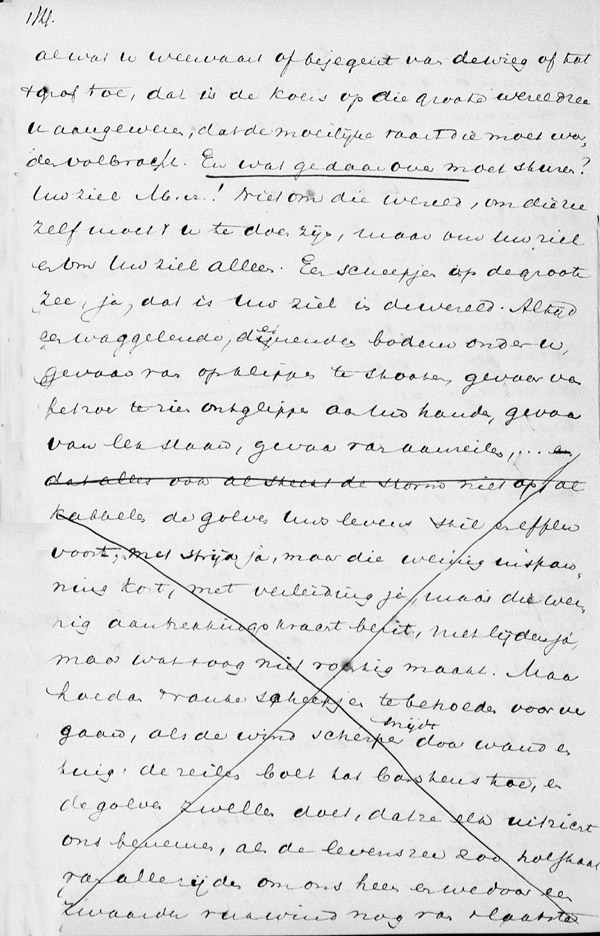 114.
al wat u weervaart of bejegent van de wieg af tot
't graf toe, dat is de koers op die groote wereldzee
u aangewezen, dat de moeilijke vaart die moet wor-
den volbracht. En wat ge daarover moet sturen?
Uw ziel M.v.! Niet om die wereld, om die zee
zelf moet 't u te doen zijn, maar om Uw ziel
en om Uw ziel alleen. Een scheepje op de groote
zee, ja, dat is Uw ziel in de wereld. Altijd
een waggelende, deinende bodem onder u,
gevaar van op klippen te stooten, gevaar van
het roer te zien ontglippen aan Uw handen, gevaar
van lek slaan, gevaar van aanzeilen, ... en
dat alles ook al steekt de storm niet op, al
kabbelen de golven Uws levens stil en effen
voort, met strijd ja, maar die weinig inspan-
ning kost, met verleiding ja, maar die wei-
nig aantrekkingskracht bezit, met lijden ja,
maar wat 't oog niet vochtig maakt. Maar
hoe dan 't ranke scheepje te behoeden voor ver
gaan, als de wind scherper snijdt door want en
tuig, de zeilen bolt tot barstens toe, en
de golven zwellen doet, dat ze elk uitzicht
ons benemen, als de levenszee zoo hol staat
van alle zijden om ons heen en we door een
zwaarden rukwind nog van plaats